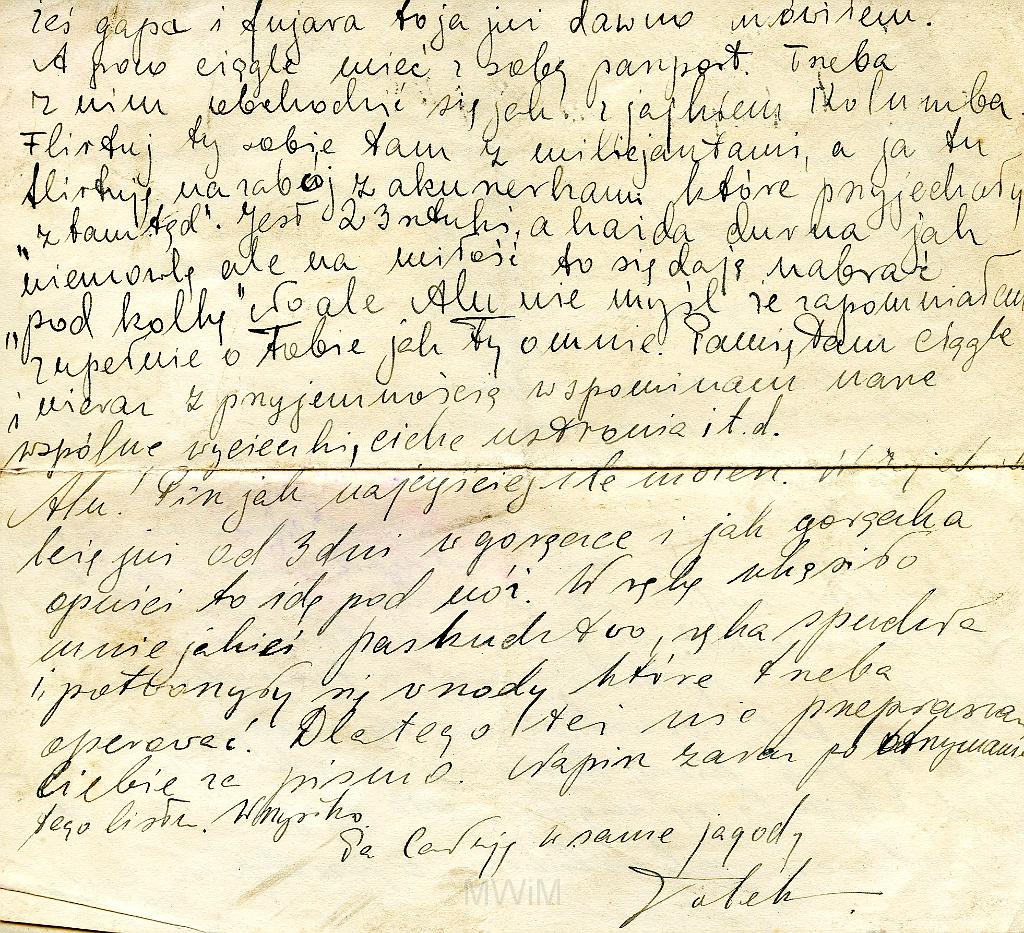 żeś gapa i fujara to ja już dawno mówiłem.
A poco ciągle mieć z sobą paszport. Trzeba
z nim obchodzić się jak z jajkiem Kolumba.
Flirtuj ty sobie tam z milicjantami, a ja tu
flirtuję na zabój z akuszerkami które przyjechały
"z tamtąd". Jest 23 sztuki, a każda durna jak
niemowlę ale na miłość to się dają nabrać
"pod kolbę" No ale Alu nie myśl że zapomniałem
zupełnie o Tobie jak Ty o mnie. Pamiętam ciągle
i nieraz z przyjemnością wspominam nasze
wspólne wycieczki, ciche ustronia i t.d.
Alu! Pisz jak najczyściej ile możesz.
leżę już od 3 dni w gorączce i jak gorączka
opuści to idę pod nóż. W rękę ukąsiło
mnie jakieś paskudztwo, ręka spuchła
i potworzyły się wrzody które trzeba
operować. Dlatego też nie przepraszam
Ciebie za pismo. Napisz zaraz po otrzymaniu
tego listu. Wszystko
Pa Całuję w same jagody
Tolek.
MWiM